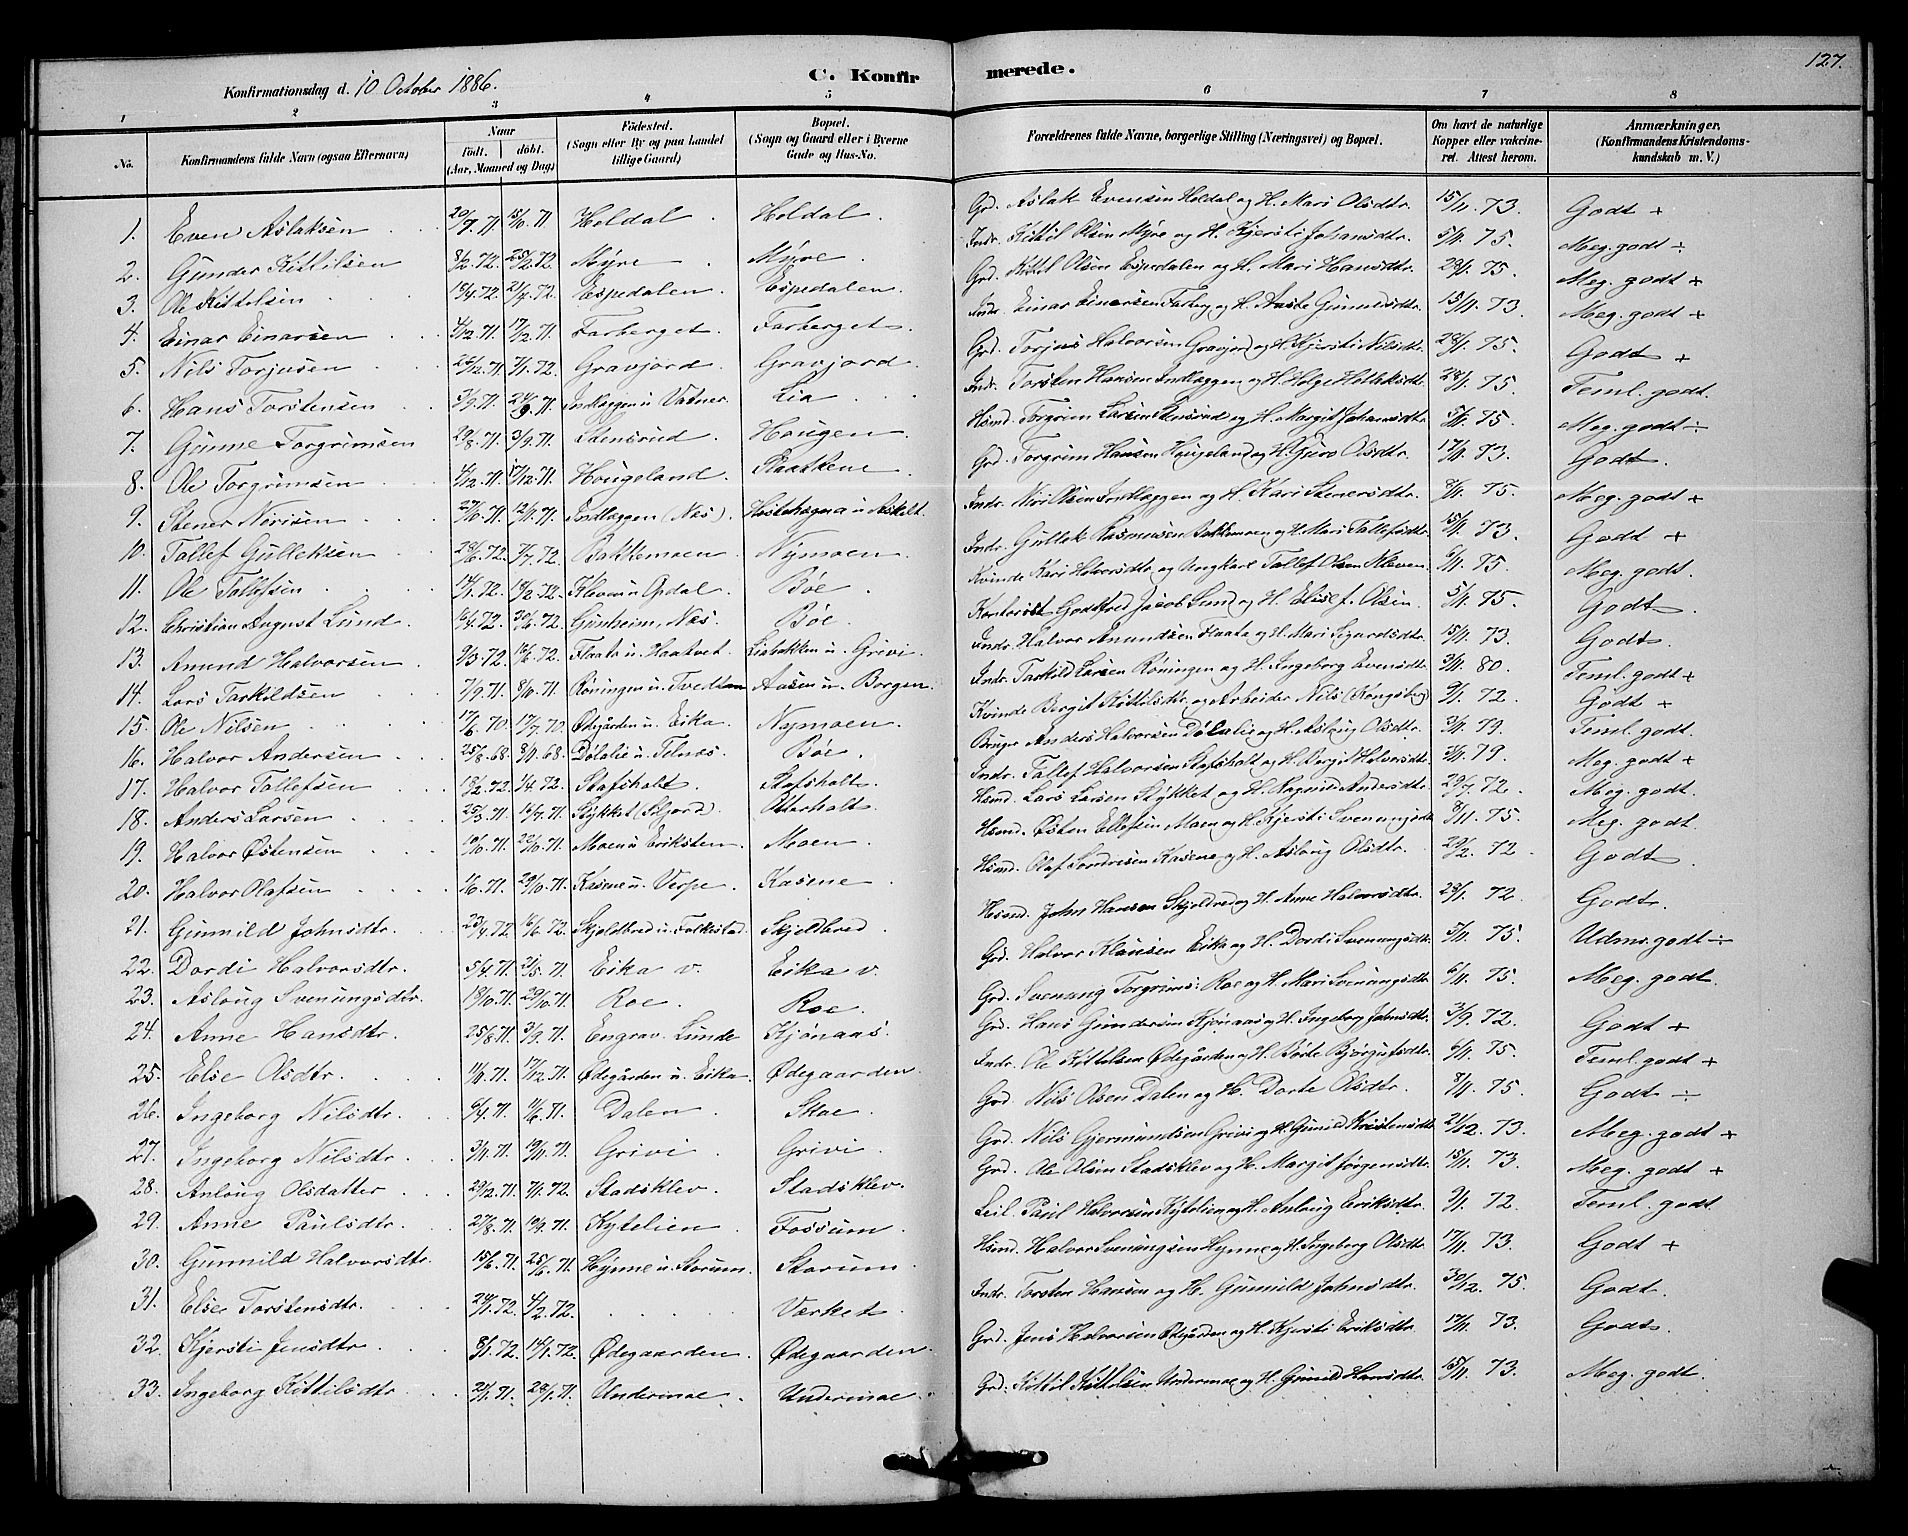 127.
C. Konfirmerede.
Konfirmationsdag d. 10 October 1886.
1 2 3 4 5 6 7 8
No. Konfirmandens fulde Navn (ogsaa Efternavn) Naar födt. döbt. (Aar, Maaned og Dag) Födested. (Sogn eller By og paa Landet tillige Gaard) Bopæl. (Sogn og Gaard eller i Byerne Gade og Hus-No. Forældrenes fulde Navne, borgerlige Stilling (Næringsvei) og Bopæl. Om havt de naturlige Kopper eller vakcineret. Attest herom. Anmærkninger. (Konfirmandens Kristendomskundskab m. V.)
1. Even Aslaksen 20/9.71 15/10.71 Holdal Holdal Grd. Aslak Evensen Holdal og H. Mari Olsdtr. 15/11.73. Godt +
2. Gunder Kittilsen 8/2.72. 25/2.72 Myre Myre Indr. Kittil Olsen Myre og H. Kjersti Johansdtr. 5/11.75. Meg. godt ÷
3. Ole Kittelsen 15/4.72 21/4.72. Espedalen Espedalen Grd. Kittil Olsen Espedalen og H. Mari Hansdtr. 28/1.75. Meg. godt +
4. Einar Einarsen 4/12.71 17/12.71. Farberget Farberget Indr. Einar Einarsen Farberg og H. Aaste Gunnulsdtr. 15/11.73. Meg. godt +
5. Nils Torjusen 26/12.71 7/1.72. Gravjord Gravjord Grd. Torjus Halvorsen Gravjord og H. Kjersti Nilsdtr. 28/1.75. Godt +
6. Hans Torstensen 3/9.71 24/9.71. Indlæggen u. Vatnar Lia Indr. Torsten Hansen Indlæggen og H. Helge Hølleksdtr. 28/1.75. Teml. godt.
7. Gunne Torgrimsen 29/8.71 3/9.71. Stensrud Hougen Hsmd. Torgrim Larsen Stensrud og H. Margit Johansdtr. 5/11.75. Meg. godt ÷
8. Ole Torgrimsen 4/12.71 17/12.71. Hougeland Plaatkene Grd. Torgrim Hansen Hougeland og H. Guro Olsdtr. 17/11.73. Godt.
9. Stener Nirisen 27/10.71. 12/11.71. Indlæggen (Næs). Hestehagna u. Askilt. Indr. Niri Olsen Indlæggen og H. Kari Stenersdtr. 8/11.75. Meg. godt +
10. Tallef Gulleksen 28/6.72. 7/7.72. Bakkemoen Nymoen Indr. Gullek Rasmusen Bakkemoen og H. Mari Tallefsdtr. 15/11.73. Godt +
11. Ole Tallefsen 14/1.72. 18/2.72. Kleven u. Opdal Bøe Kvinde Kari Halvorsdtr. og Ungkarl Tallef Olsen Kleven 6/11.75. Meg. godt.
12. Christian August Lund 16/4.72. 30/6.72. Gunheim, Næs. Bøe Kontorist Godtfred Jacob Lund og H. Elise f. Olsen. 5/11.75. Godt.
13. Amund Halvorsen 9/3.72. 16/6.72. Flaata u. Haatvet Liabakken u. Grivi Indr. Halvor Amundsen Flaata og H. Mari Sigurdsdtr. 15/11.73. Godt.
14. Lars Tarkildsen 7/9.71. 8/10.71. Røningen u. Tvedten Aasen u. Borgen Indr. Tarkild Larsen Røningen og H. Ingeborg Evensdtr. 3/11.80. Teml. godt +
15. Ole Nilsen 17/6.70. 17/7.70. Ødegården u. Eika. Nymoen Kvinde Birgit Kittilsdtr. og Arbeider Nils (Kongsberg) 9/1.72. Godt +
16. Halvor Andersen 25/8.68. 8/11.68. Dölalie u. Folnæs. Bøe Bruger Anders Halvorsen Dölalie og H. Aslaug Olsdtr. 3/11.79. Teml. godt.
17. Halvor Tallefsen 18/2.72. 1/4.72. Stafsholt Stafsholt Indr. Tallef Halvorsen Stafsholt og H. Birgit Halvorsdtr. 3/11.79. Meg. godt +
18. Anders Larsen 25/3.71. 16/7.71. Stykket (Skjord) Otterholt Hsmd. Lars Larsen Stykket og H. Ragnild Andersdtr. 29/7.72. Meg. godt.
19. Halvor Østensen 10/10.71. 22/10.71. Moen u. Erikstein Moen Hsmd. Østen Ellefsen Moen og H. Kjersti Svenungsdtr. 8/11.75. Meg. godt.
20. Halvor Olafsen 1/6.71. 29/10.71. Kasene u. Verpe Kasene Hsmd. Olaf Sondresen Kasene og H. Aslaug Olsdtr. 29/2.72 Godt
21. Gunnild Johnsdtr. 23/4.72. 16/6.72. Skjeldbred u. Folkestad Skjeldbred Hsmd. John Hansen Skjeldred og H. Anne Halvorsdtr. 28/1.72 Godt.
22. Dordi Halvorsdtr. 5/4.71. 21/5.71. Eika v. Eika v. Grd. Halvor Klausen Eika og H. Dordi Svenungsdtr. 5/11.75. Udm. godt ÷
23. Aslaug Svenungsdtr. 18/10.71. 29/10.71. Roe. Roe. Grd. Svenung Torgrims: Roe og H. Mari Svenungsdtr. 6/11.75. Meg. godt.
24. Anne Hansdtr. 25/8.71. 3/9.71. Engrav. Lunde Kjönaas Grd. Hans Gundersen Kjönaas og H. Ingeborg Johnsdtr. 3/9.72. Godt +
25. Else Olsdtr. 11/6.71. 17/12.71. Ødegården u. Eika. Ødegaarden Indr. Ole Kittelsen Ødegården og H. Birte Bjørgufsdtr. 6/11.75. Teml. godt +
26. Ingeborg Nilsdtr. 6/4.71. 11/6.71. Dalen Skoe Grd. Nils Olsen Dalen og H. Dorte Olsdtr. 8/11.75. Godt ÷
27. Ingeborg Nilsdtr. 3/11.71. 19/11.71. Grivi Grivi Grd. Nils Gjermundsen Grivi og H. Gunild Kristensdtr. 21/12.73. Meg. godt +
28. Anlaug Olsdatter 29/12.71. 7/1.72. Stadsklev. Stadsklev. Grd. Ole Olsen Stadsklev og H. Margit Jörgensdtr. 15/11.73. Meg. godt +
29. Anne Paulsdtr. 27/8.71. 19/9.71. Kytelien Fossum Leil. Paul Halvorsen Kytelien og H. Anlaug Eriksdtr. 9/1.72. Teml. godt
30. Gunnild Halvorsdtr. 15/6.71. 25/6.71. Hynne u. Storum. Storum Hsmd. Halvor Svenungsen Hynne og H. Ingeborg Olsdtr. 17/11.73. Godt +
31. Else Torstensdtr. 24/1.72. 4/2.72. Værket Indr. Torsten Hansen og H. Gunnild Johnsdtr. 30/12.75. Godt.
32. Kjersti Jensdtr. 8/1.72. 14/1.72. Ødegaarden Ødegaarden Grd. Jens Halvorsen Ødegården og H. Kjersti Eriksdtr. 17/11.73. Godt.
33. Ingeborg Kittilsdtr. 21/1.71. 28/1.71. Undermoe Undermoe Grd. Kittil Kittelsen Undermoe og H. Gunild Hansdtr. 15/11.73. Meg. godt.